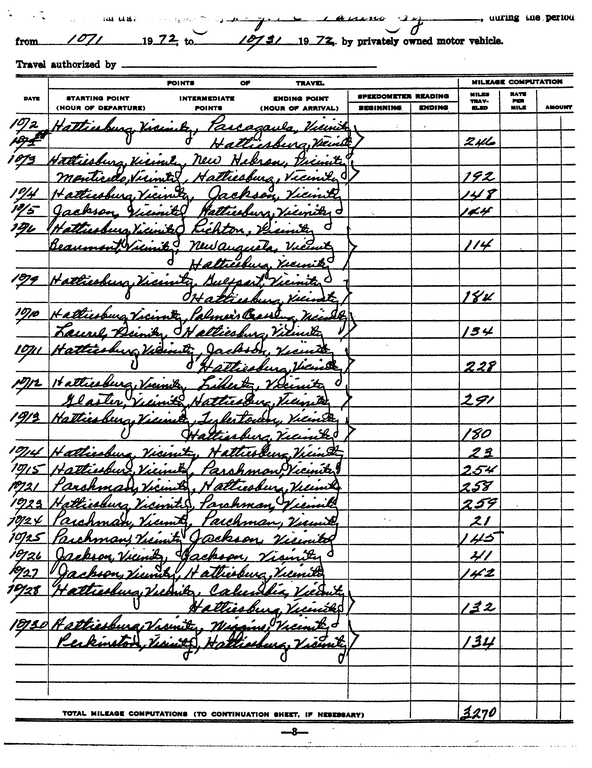 , during the period
from 10/1 1972, to 10/31 1972, by privately owned motor vehicle.
Travel authorized by
POINTS OF TRAVEL MILEAGE COMPUTATION
DATE STARTING POINT (HOUR OF DEPARTURE) INTERMEDIATE POINTS ENDING POINT (HOUR OF ARRIVAL) SPEEDOMETER READING BEGINNING ENDING MILES TRAV-ELED RATE PER MILE AMOUNT
10/2 Hattiesburg Vicinity, Pascagoula, Vicinity
Hattiesburg, Vicinity 246
10/3 Hattiesburg Vicinity, New Hebron, Vicinity
Monticello, Vicinity, Hattiesburg, Vicinity 192
10/4 Hattiesburg Vicinity, Jackson, Vicinity 148
10/5 Jackson, Vicinity Hattiesburg, Vicinity 144
10/6 Hattiesburg Vicinity Richton, Vicinity
Beaumont, Vicinity, New Augusta, Vicinity 114
Hattiesburg, Vicinity
10/9 Hattiesburg Vicinity, Gulfport, Vicinity
Hattiesburg, Vicinity 184
10/10 Hattiesburg Vicinity, Palmer's Crossing, Vicinity
Laurel, Vicinity, Hattiesburg, Vicinity 134
10/11 Hattiesburg Vicinity, Jackson, Vicinity
Hattiesburg, Vicinity 228
10/12 Hattiesburg, Vicinity, Liberty, Vicinity
Gloster, Vicinity, Hattiesburg, Vicinity 291
10/13 Hattiesburg Vicinity, Tylertown, Vicinity
Hattiesburg, Vicinity 180
10/14 Hattiesburg Vicinity, Hattiesburg, Vicinity 23
10/15 Hattiesburg Vicinity, Parchman, Vicinity 254
10/21 Parchman, Vicinity, Hattiesburg, Vicinity 258
10/23 Hattiesburg Vicinity, Parchman, Vicinity 259
10/24 Parchman, Vicinity, Parchman, Vicinity 21
10/25 Parchman, Vicinity Jackson Vicinity 145
10/26 Jackson, Vicinity, Jackson Vicinity 41
10/27 Jackson, Vicinity, Hattiesburg, Vicinity 142
10/28 Hattiesburg Vicinity, Columbia, Vicinity
Hattiesburg, Vicinity 132
10/30 Hattiesburg, Vicinity, Wiggins, Vicinity
Perkinston, Vicinity, Hattiesburg, Vicinity 134
TOTAL MILEAGE COMPUTATIONS (TO CONTINUATION SHEET, IF NESESSARY) 3270
—3—